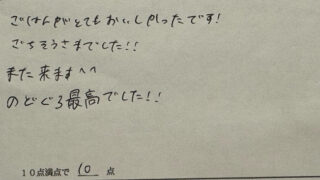 ごはんがとてもおいしかったです!
ごちそうさまでした!!
また来ます^^
のどぐろ最高でした!!
10点満点で 10 点